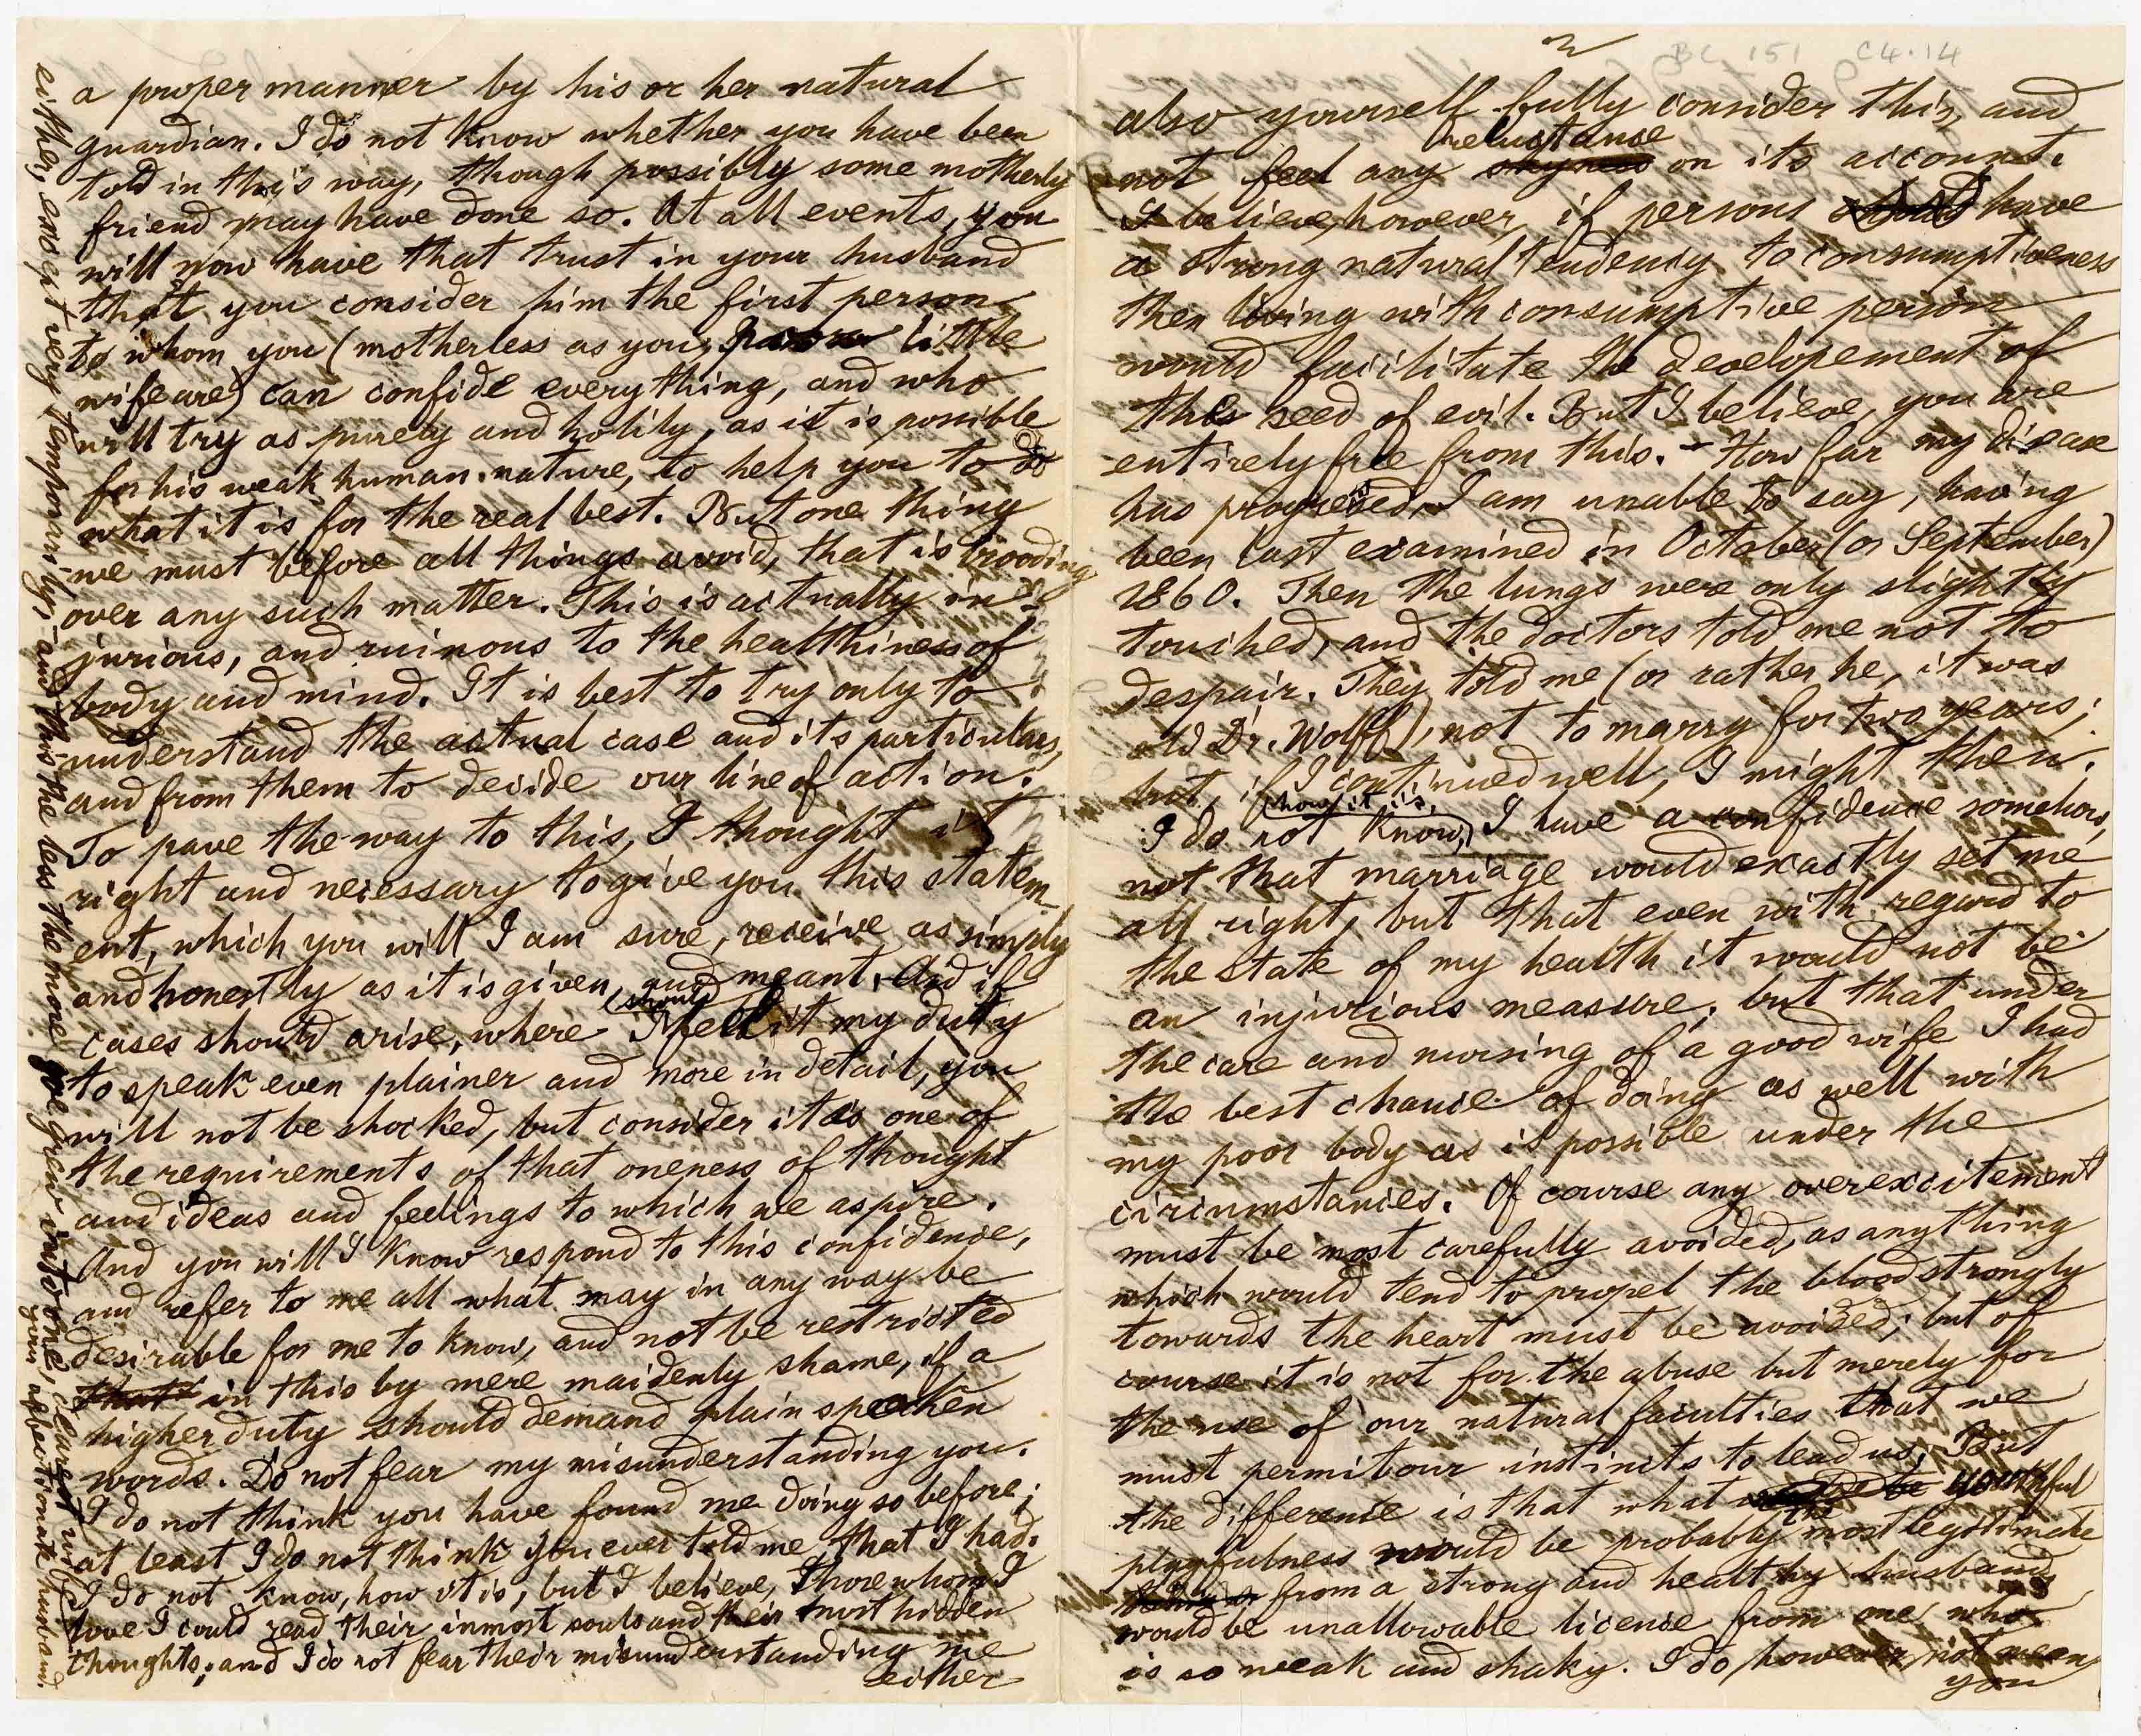 a proper manner by his or her natural
guardian. I do not know whether you have been
told in this way, though possibly some motherly
friend may have done so. At all events, you
will now have that trust in your husband
that you consider him the first person
to whom you (motherless as you, little
wife are) can confide everything, and who
will try as purely and holily, as it is possible
for his weak human nature, to help you to do
what it is for the real best. But one thing
we must before all things avoid, that is brooding
over any such matter. This is actually in-
jurious, and ruinous to the healthiness of
body and mind. It is best to try only to
understand the actual case and its particulars,
and from them to decide our line of action.
To pave the way to this, I thought it
right and necessary to give you this statem-
ent, which you will I am sure, receive as simply
and honestly as it is given, and meant. And if
cases should arise, where I should feel it my duty
to speak even plainer and more in detail, you
will not be shocked, but consider it as one of
the requirements of that oneness of thought
and ideas and feelings to which we aspire.
And you will I know respond to this confidence,
and refer to me all what may in any way be
desirable for me to know, and not be restricted
that in this by mere maidenly shame, if a
higher duty should demand plain spoken
words. Do not fear my misunderstanding you.
I do not think you have found me doing so before;
at least I do not think you ever told me that I had.
I do not know, how it is, but I believe, those whom I
love I could read their inmost souls and their most hidden
thoughts; and I do not fear their misunderstanding me
either
either, except very temporarily,- and this the less the more we grow into one, dearest wife
your affectionate husband.
2
BC 151 C4.14
also yourself fully consider this, and
not feel any shyness reluctance on its account.
I believe, however, if persons have
a strong natural tendency to consumptiveness
then living with consumptive person
would facilitate the developement of
this seed of evil. But I believe, you are
entirely free from this. - How far my disease
has progressed, I am unable to say, having
been last examined in October (or September)
1860. Then the lungs were only slightly
touched, and the doctors told me not to
despair. They told me (or rather he, it was
old Dr. Wolff), not to marry for two years;
but, if I continued well, I might then.
I do not know, how it is, I have a confidence somehow,
not that marriage would exactly set me
all right, but that even with regard to
the state of my health it would not be
an injurious measure; but that under
the care and nursing of a good wife I had
the best chance of doing as well with
my poor body as is possible under the
circumstances. Of course any overexcitement
must be most carefully avoided, as anything
which would tend to propel the blood strongly
towards the heart must be avoided; but of
course it is not for the abuse but merely for
the use of our natural faculties that we
must permit our instincts to lead us. But
the difference is that what youthful
playfulness would be probably the most legitimate
from a strong and healthy husband
would be unallowable license from one who
is so weak and shaky. I do, however, not mean
you